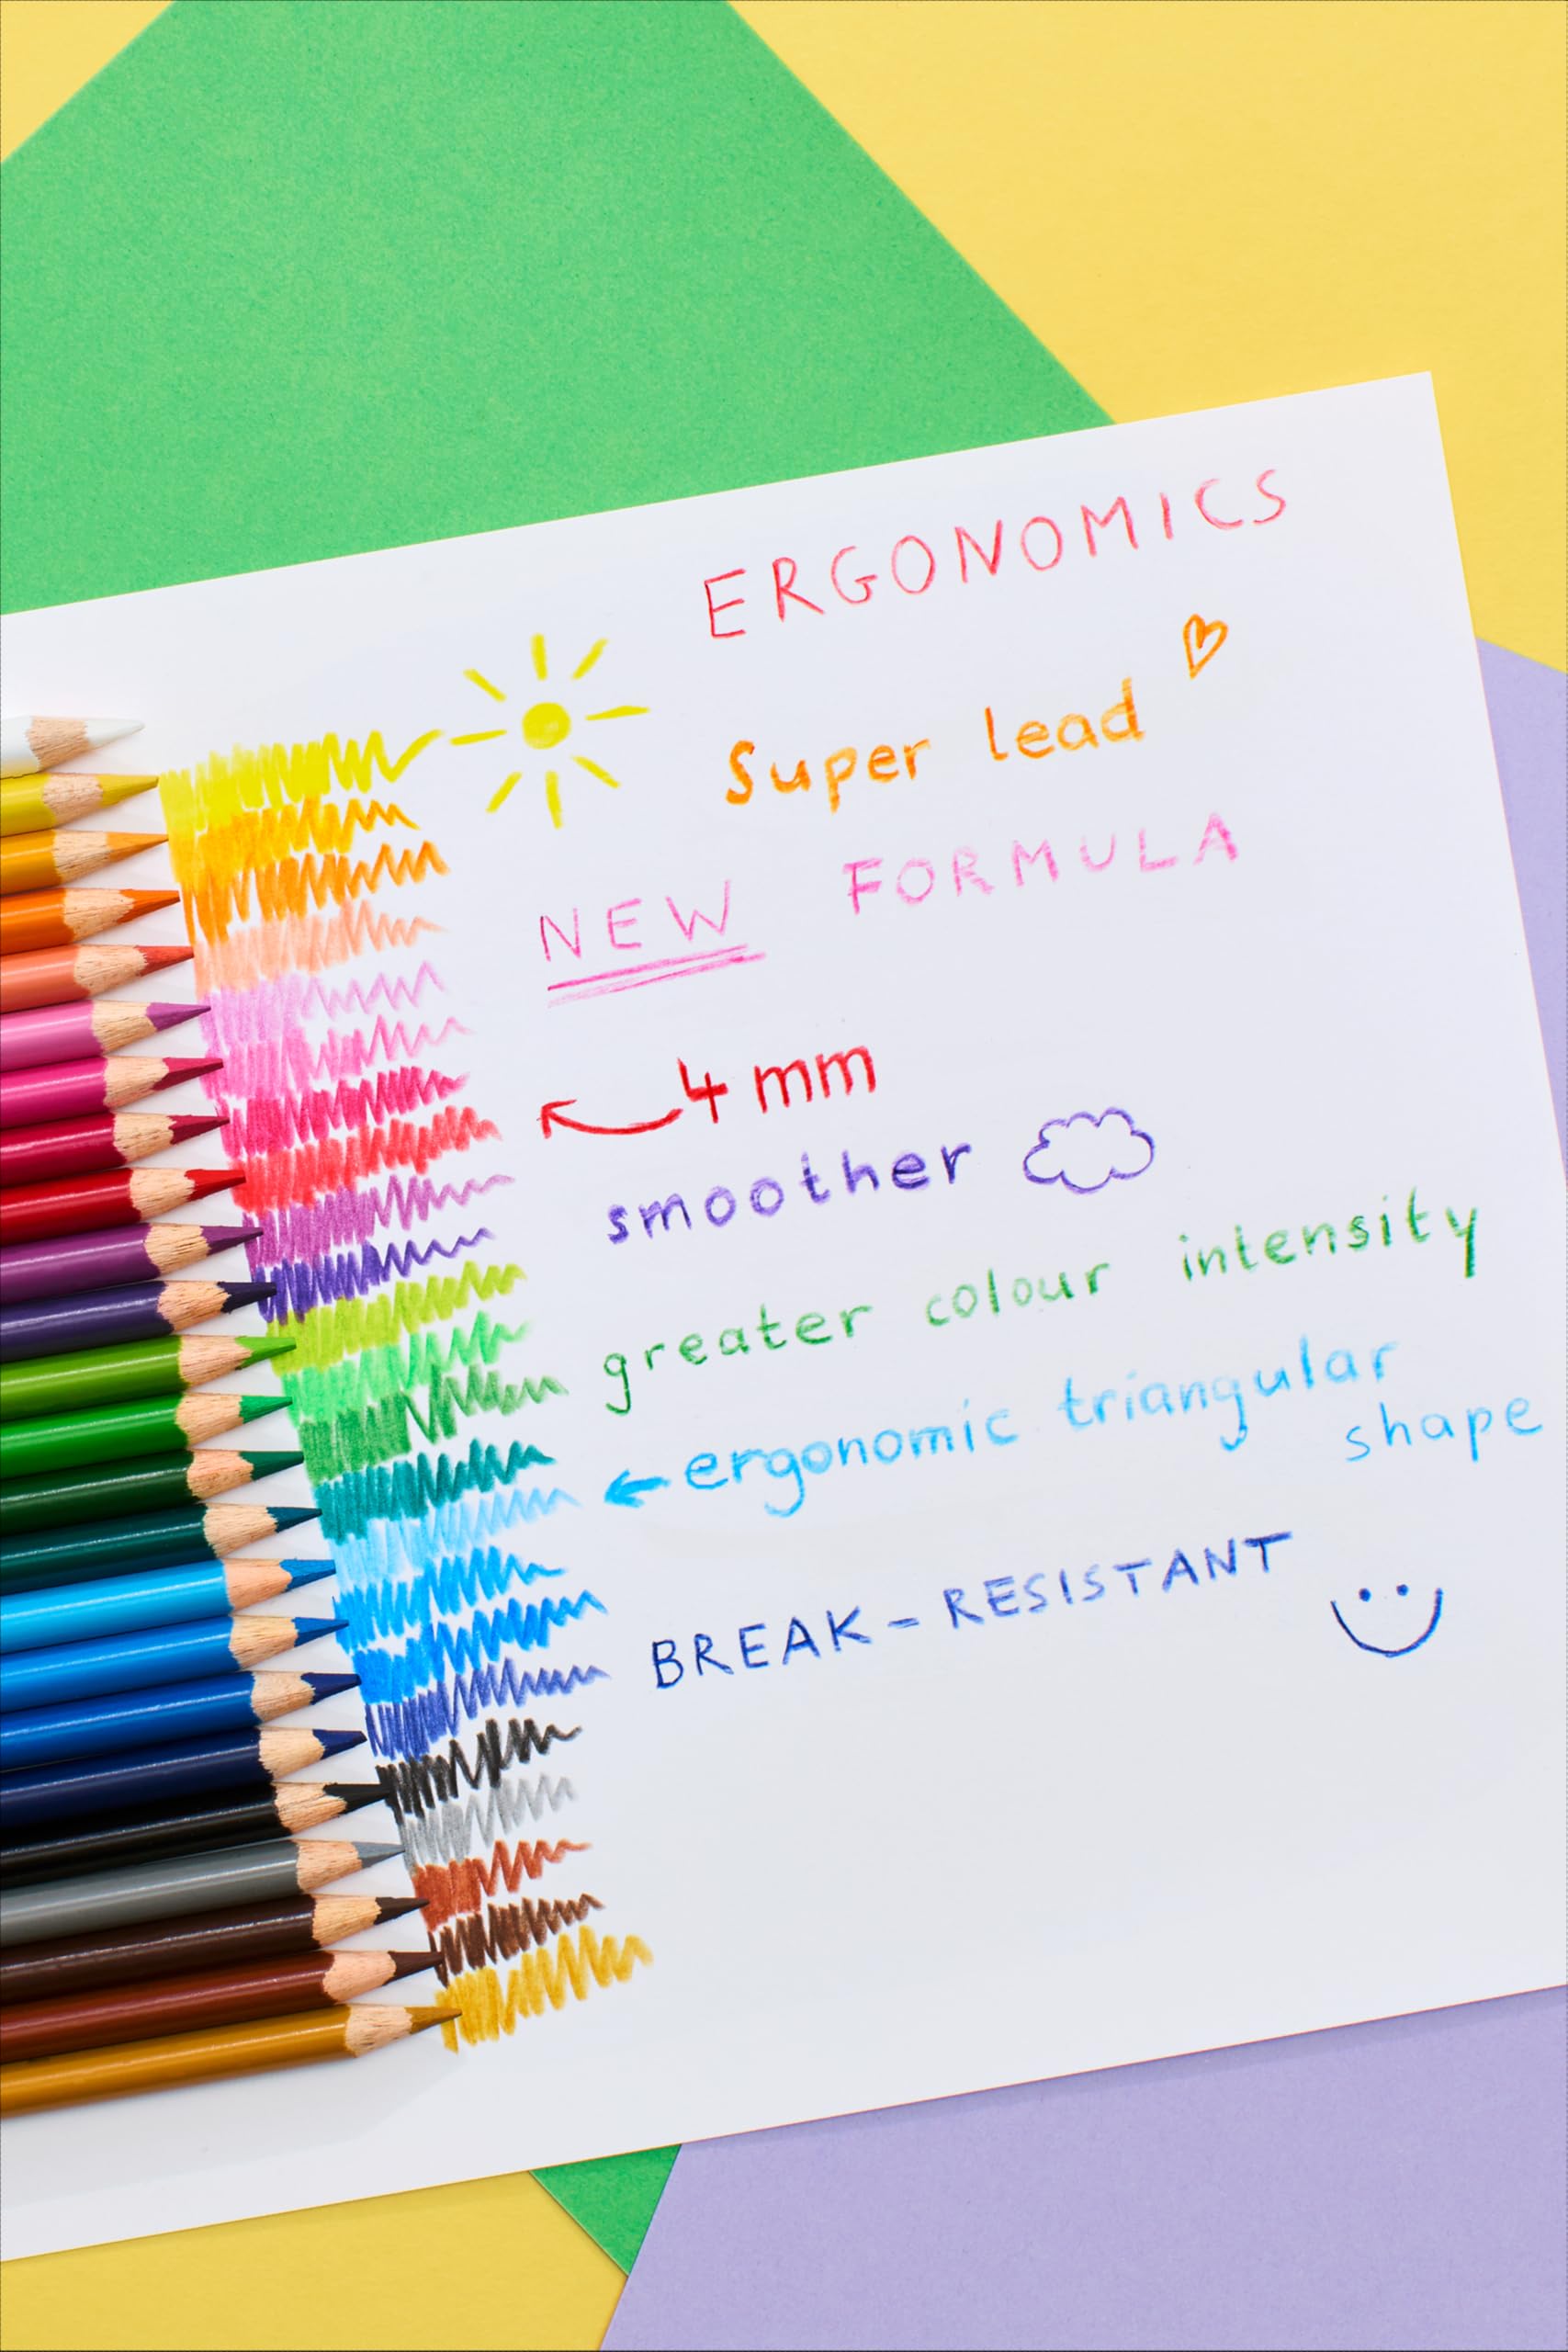 ERGONOMICS
Super lead
NEW FORMULA
4 mm
smoother
greater colour intensity
ergonomic triangular
shape
BREAK-RESISTANT